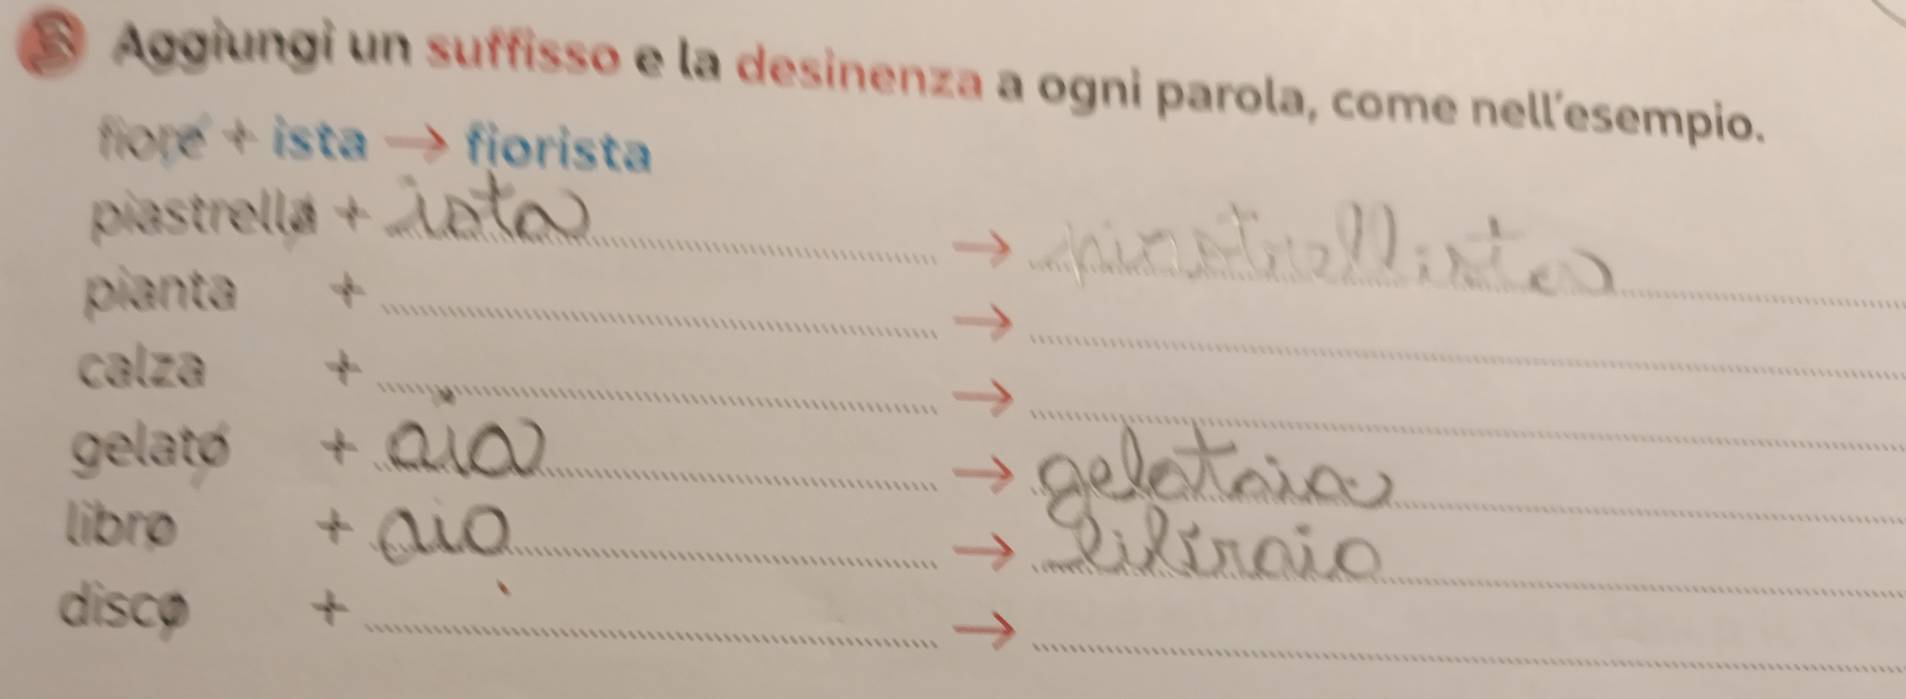 Aggiungi un suffisso e la desinenza a ogni parola, come nell'esempio.
fiore + ista → fiorista
piastrella + ista → piastrellista
pianta + →
calza + →
gelato + aia → gelataia
libro + aio → libraio
disco + →